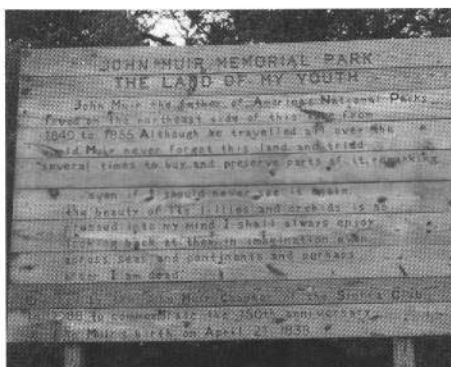 JOHN MUIR MEMORIAL PARK
THE LAND OF MY YOUTH
John Muir the father of America's National Parks
lived on the northeast side of this from
1849 to 1855 Although he travelled all over the
world Muir never forgot this land and tried
several times to buy and preserve parts of it, remarking
even if I should never see it again
the beauty of its lillies and orchids is so
pressed into my mind I shall always enjoy
looking back at them in imagination even
across seas and continents and perhaps
after I am dead.
John Muir Chapter of the Sierra Club
to commemorate the 150th anniversary
Muir's birth on April 21, 1838